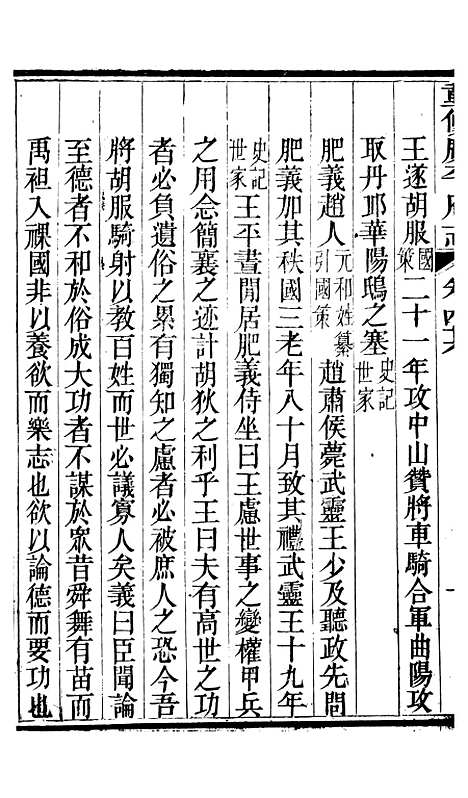 重修廣平府志 卷四六
王遂胡服國策二十一年攻中山贊將車騎合軍曲陽攻
取丹邱華陽鴟之塞史記世家
肥義趙人元和姓纂引國策趙肅侯薨武靈王少及聽政先問
肥義加其秩國三老年八十月致其禮武靈王十九年
史記世家王平晝閒居肥義侍坐曰王慮世事之變權甲兵
之用念簡襄之迹計胡狄之利乎王曰夫有高世之功
者必負遺俗之累有獨知之慮者必被庶人之恐今吾
將胡服騎射以教百姓而世必議寡人矣義曰臣聞論
至德者不和於俗成大功者不謀於眾昔舜舞有苗而
禹袒入裸國非以養欲而樂志也欲以論德而要功也